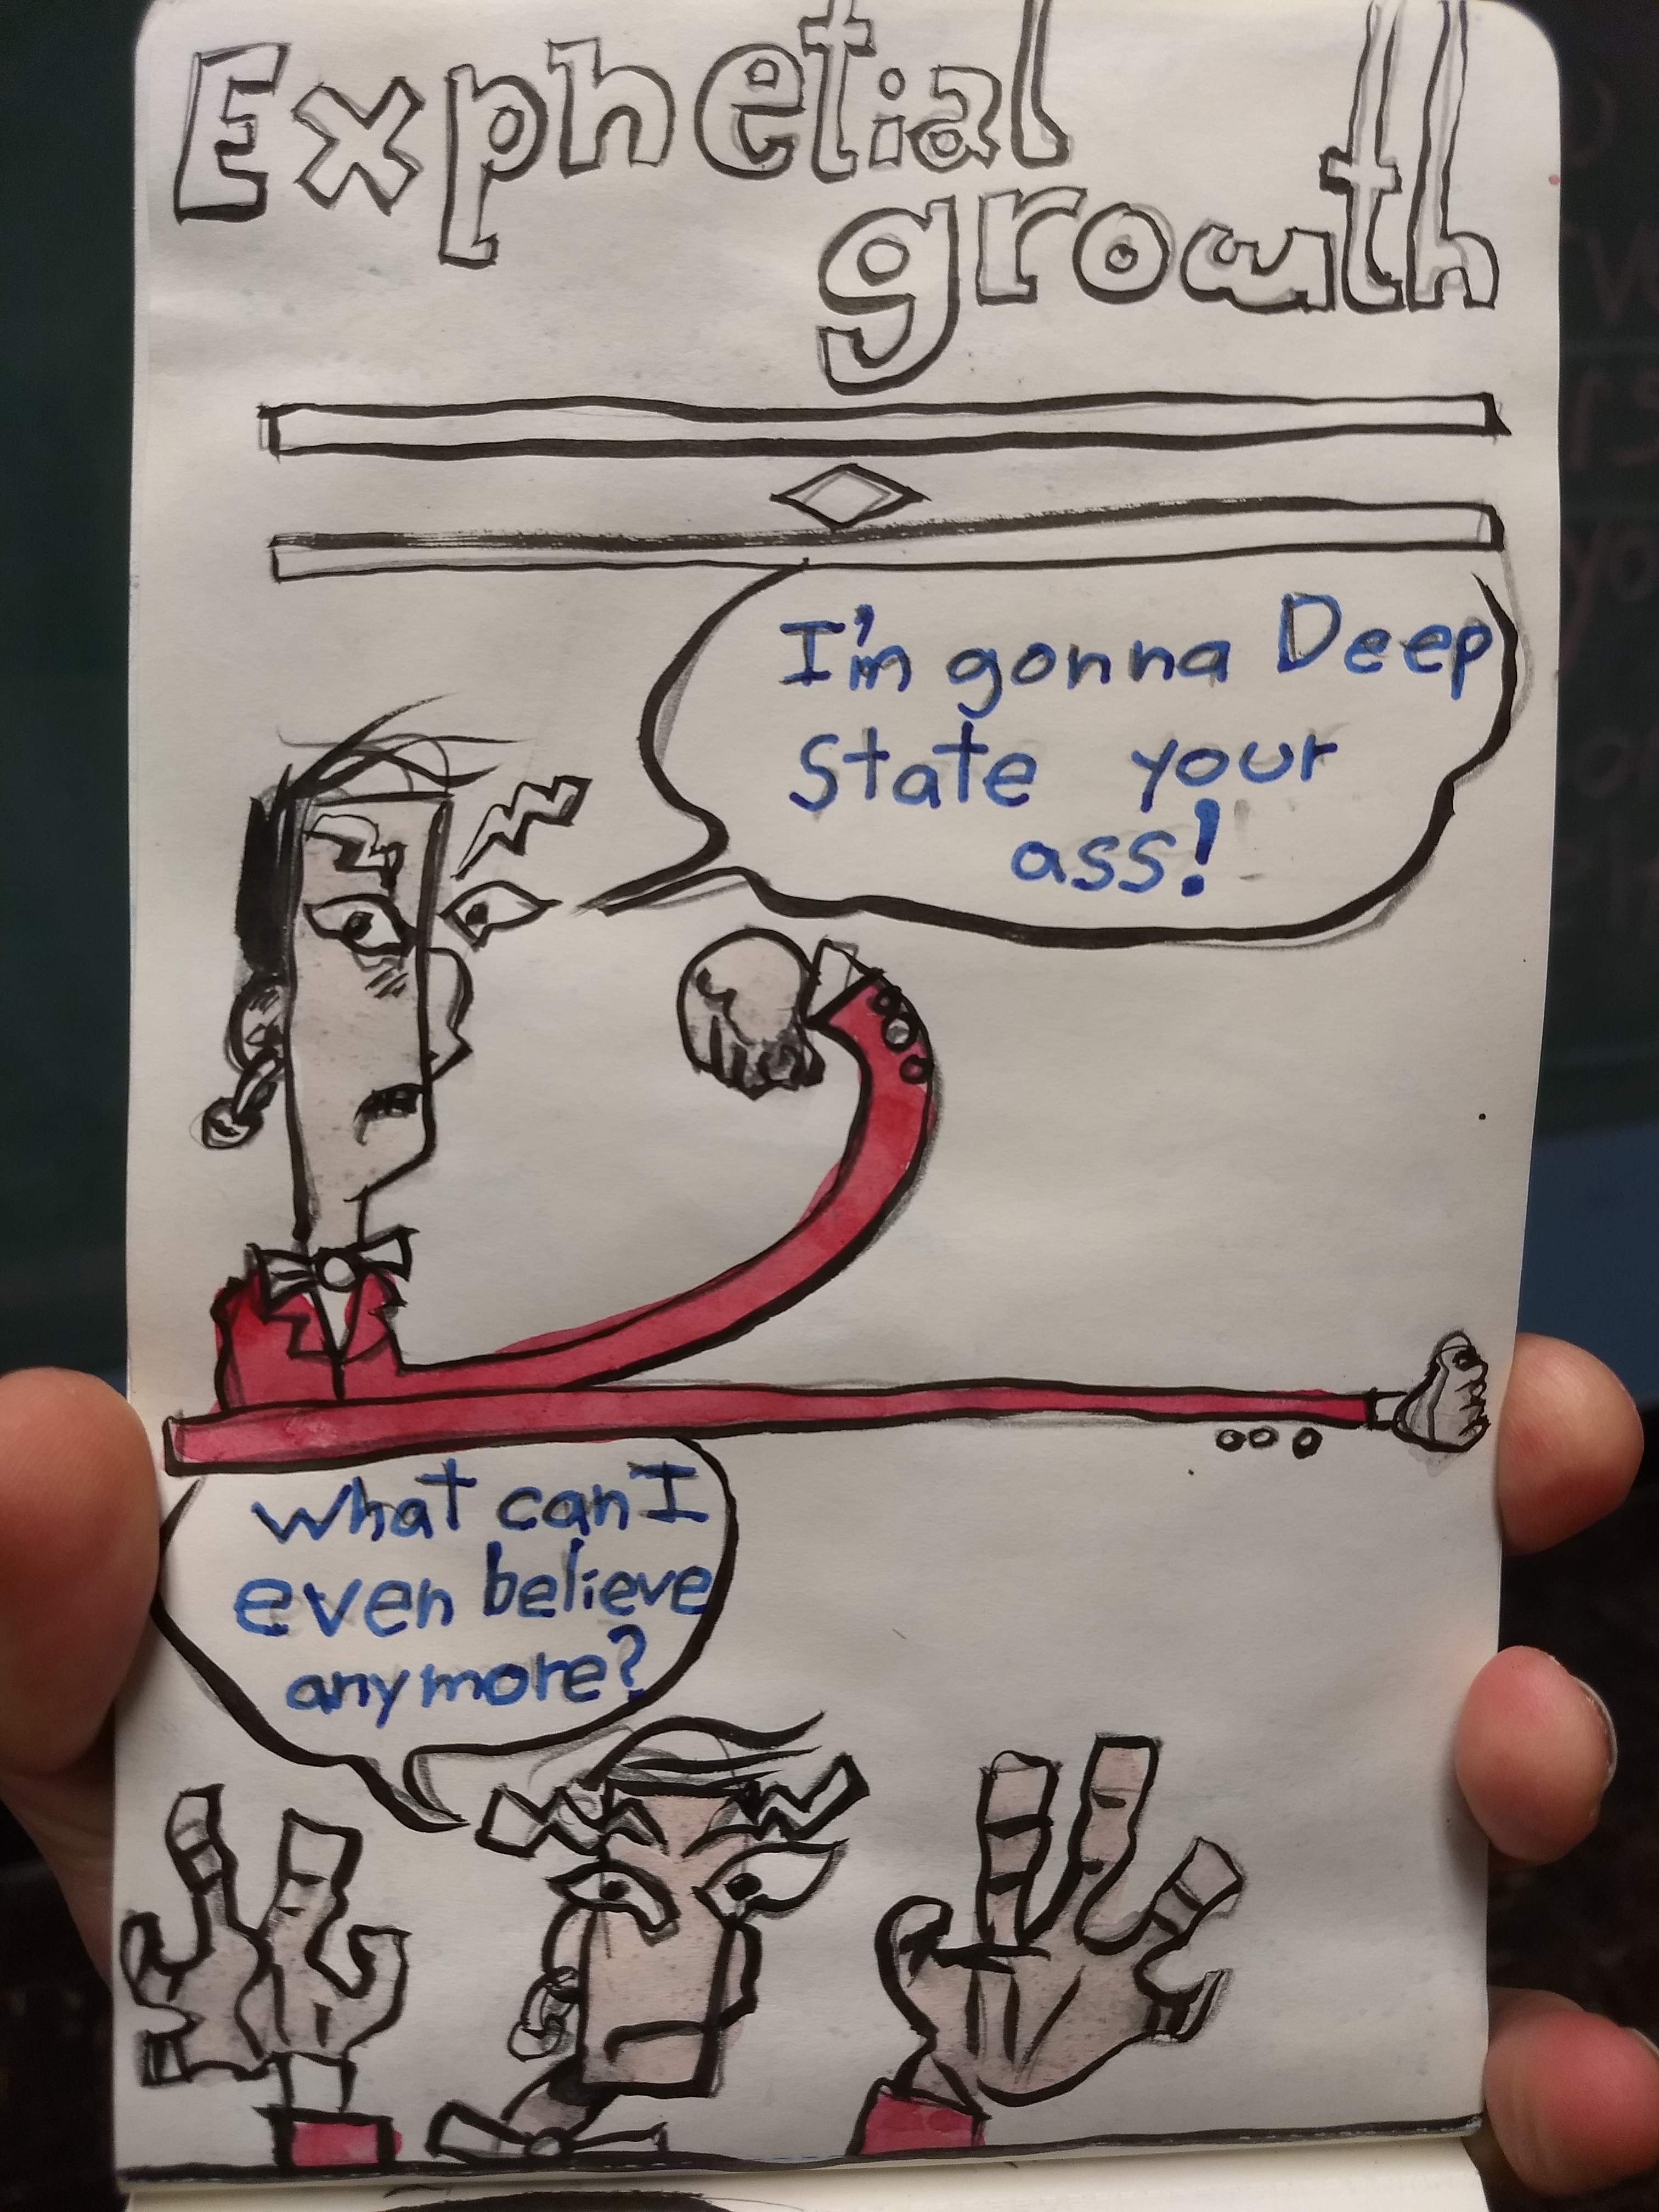 Exphetial
growth
I'm gonna Deep
State your
ass!
What can I
even believe
anymore?